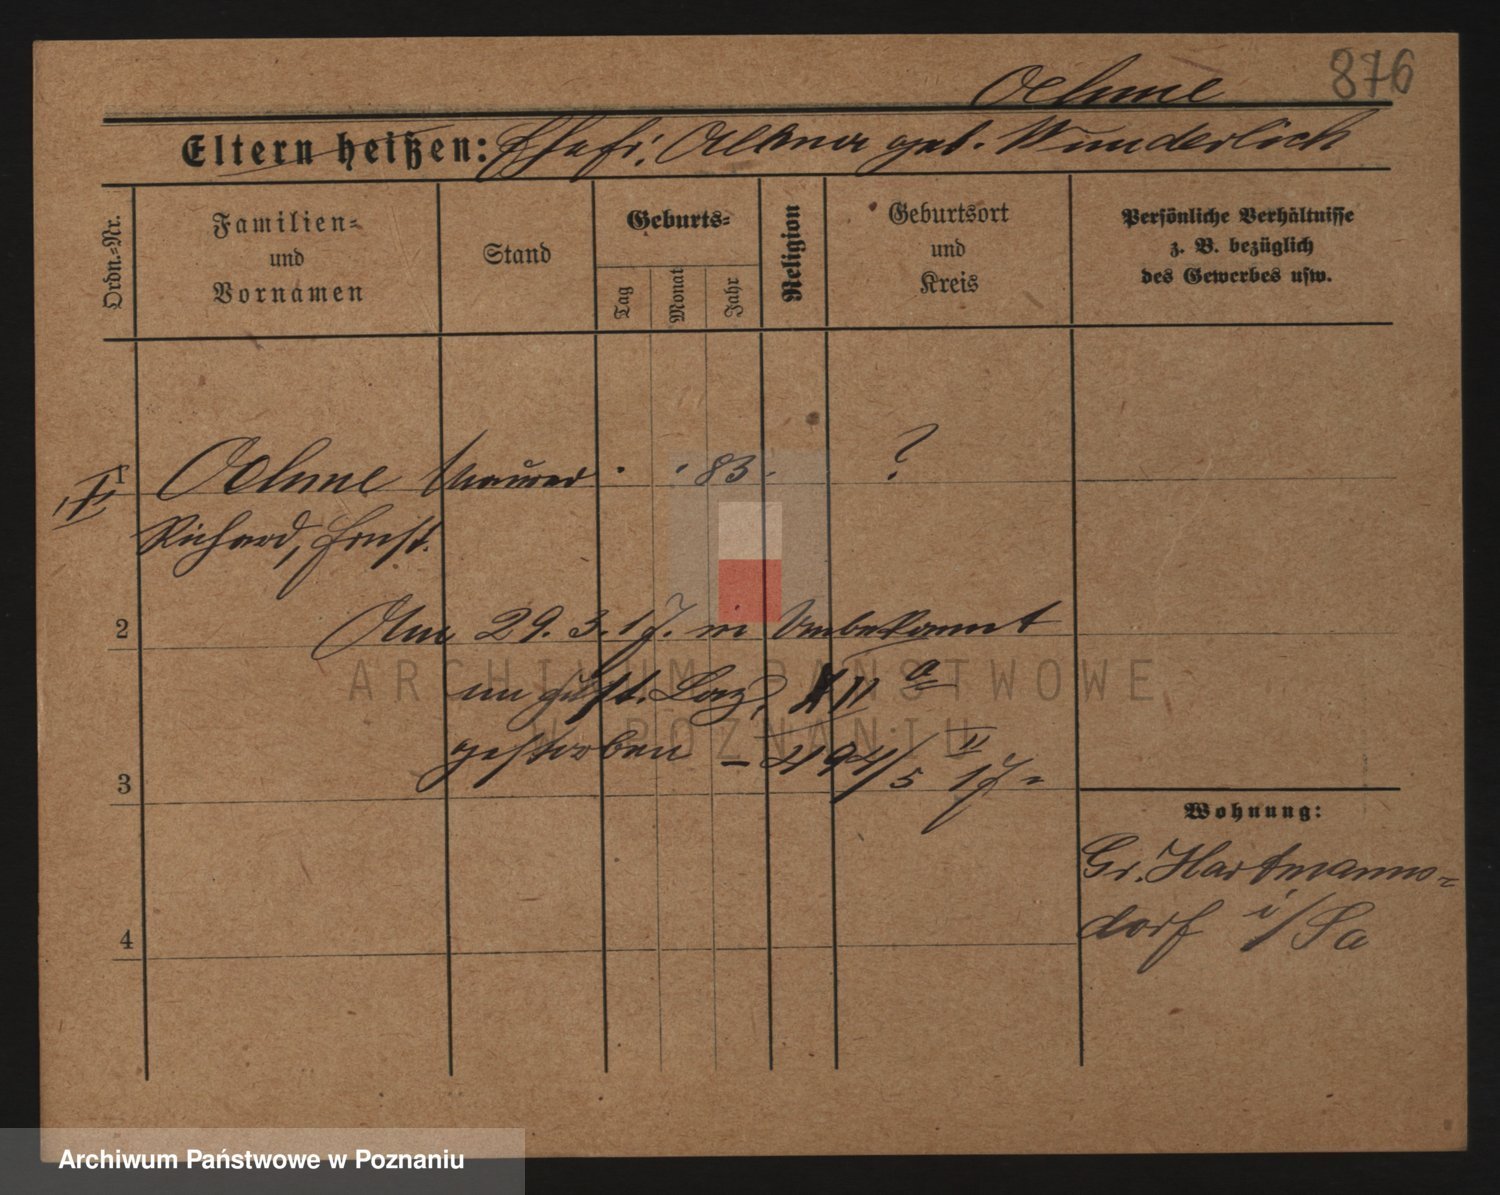 Oehme 876
Eltern heißen: Ehefr. geb. Wunderlich
Ordn.-Nr.
Familien- und Vornamen
Stand
Geburts-
Tag
Monat
Jahr
Religion
Geburtsort und Kreis
Persönliche Verhältnisse
z. B. bezüglich
des Gewerbes usw.
1 Oehme Maurer 83 ?
Richard, Ernst.
2 Am 29.3.17. in Unbekannt
im Laz.
gestorben – 494/5 17
3
4
Wohnung:
Gr. Hartmanns-
dorf i/Sa
ARCHIWUM PAŃSTWOWE
W POZNANIU
Archiwum Państwowe w Poznaniu